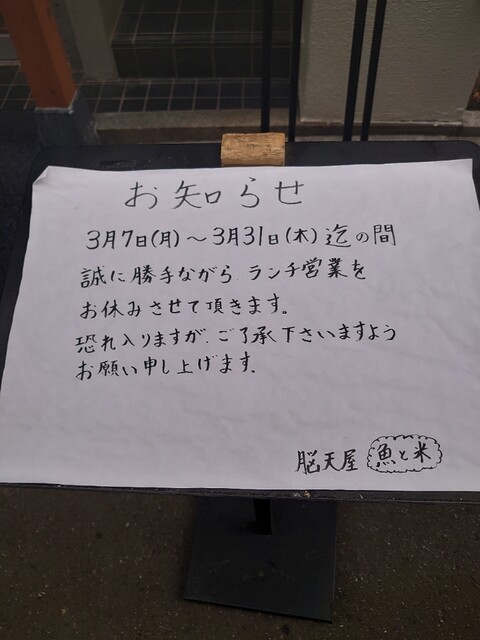 お知らせ
3月7日(月)～3月31日(木)迄の間
誠に勝手ながら ランチ営業を
お休みさせて頂きます。
恐れ入りますが、ご了承下さいますよう
お願い申し上げます。
脳天屋 魚と米